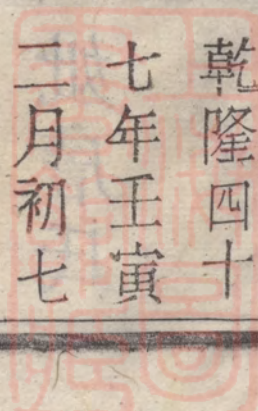 乾隆四十
七年壬寅
二月初七